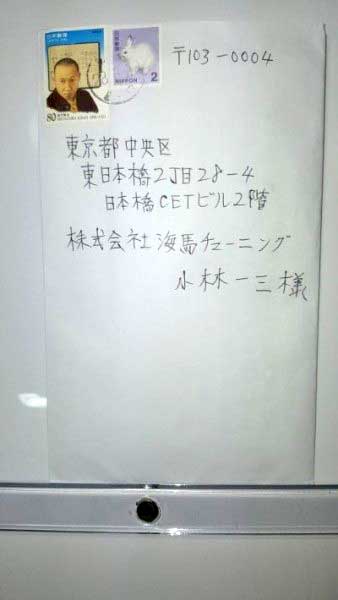 日本郵便
80
日本郵便
NIPPON 2
〒103-0004
東京都中央区
東日本橋2丁目28-4
日本橋CETビル2階
株式会社海馬チューニング
小林一三様